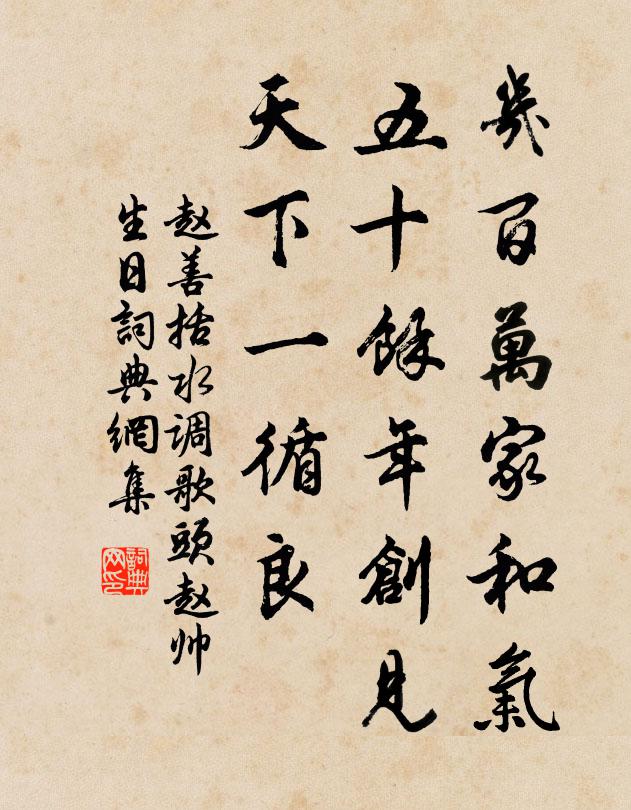 幾百萬家和氣
五十餘年創見
天下一循良
赵善括水调歌頭赵帅
生日詞典網集
詞典網印